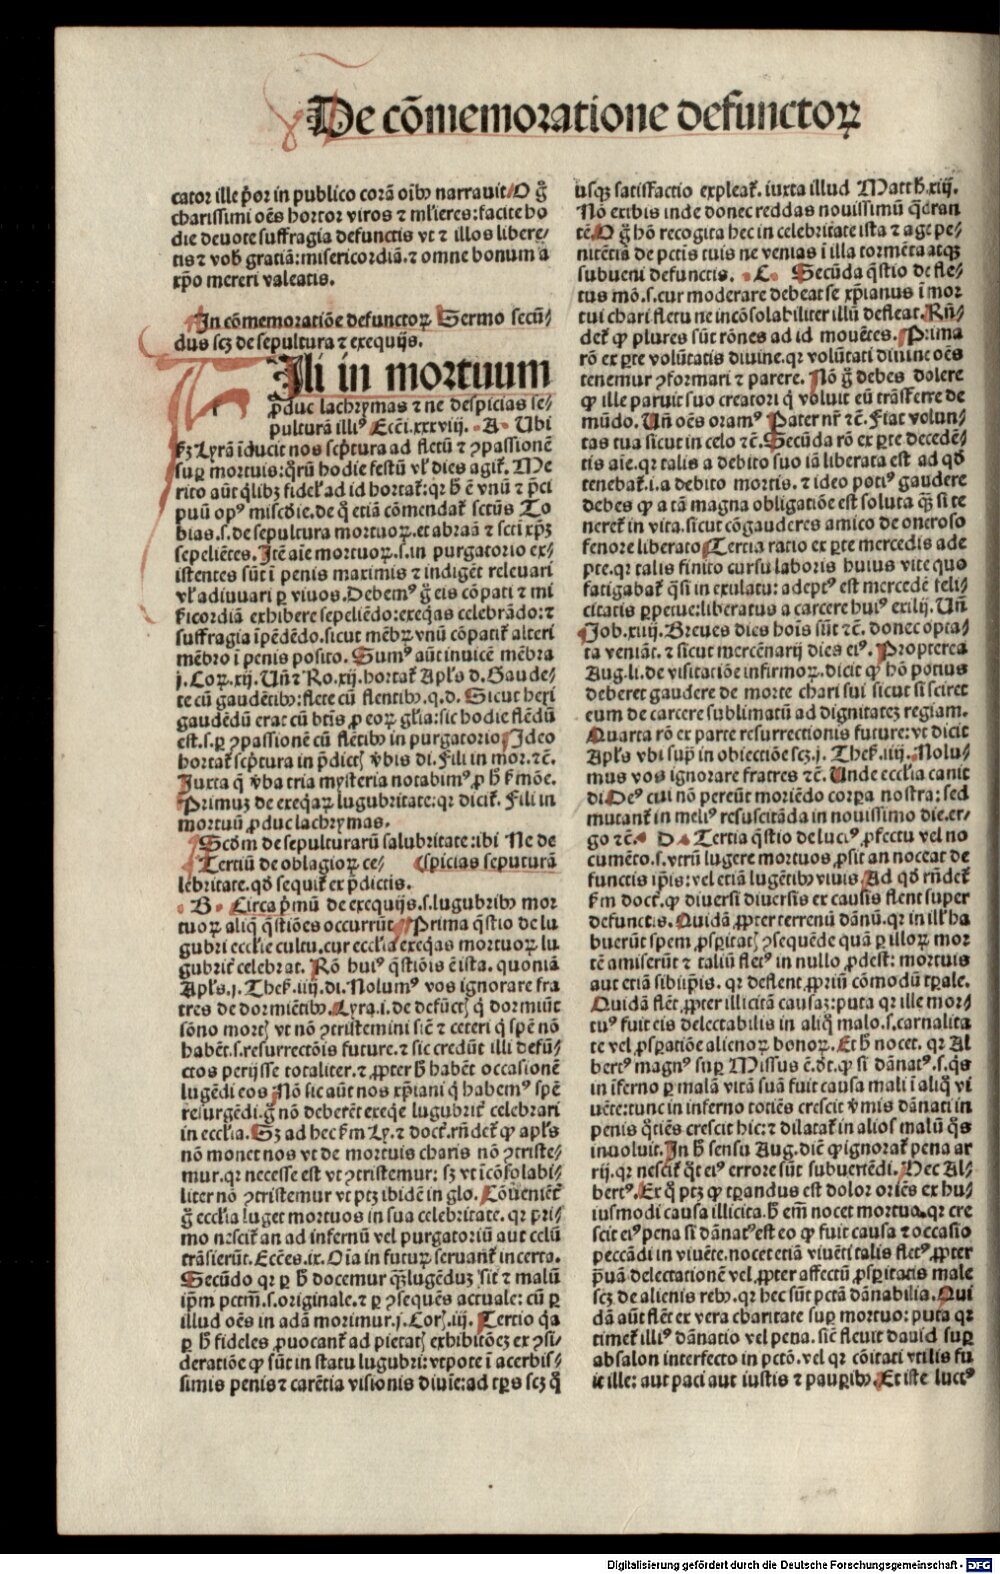 De cōmemoratione defunctoꝝ
cator ille p̄or in publico corā oībꝰ narrauit. O g̊
charissimi oēs hortor viros ⁊ ml̓ieres: facite ho
die deuote suffragia defunctis vt ⁊ illos libere/
tis ⁊ vob̓ gratiā: misericordiā. ⁊ omne bonum a
xp̄o mereri valeatis.
In cōmemoratiōe defunctoꝝ Sermo secū/
dus scꝫ de sepultura ⁊ exequijs.
Ili in mortuum
ꝓduc lachrymas ⁊ ne despicias se/
pulturā illiꝰ Ecci. xxxviij. A Ubi
ẜꝫ Lyrā īducit nos scp̄tura ad fletū ⁊ ꝯpassionē
suꝑ mortuis: q̄rū hodie festū vl̓ dies agit̉. Me
rito aūt q̄libꝫ fidel̓ ad id hortat̉: qr h̄ ē vnū ⁊ p̄ci
puū opꝰ mis̄die. de q̊ etiā cōmendat̉ sctūs To
bias. s. de sepultura mortuoꝝ. et abraā ⁊ scti xp̄ꝫ
sepeliētes. Itē aīe mortuoꝝ. s. in purgatorio ex/
istentes sūt ī penis maximis ⁊ indigēt releuari
vl̓ adiuuari ꝑ viuos. Debemꝰ g̊ eis cōpati ⁊ mi
ẜicordiā exhibere sepeliēdo: exeq̄as celebrādo: ⁊
suffragia īpēdēdo. sicut mēbꝝ vnū cōpatit̉ alteri
mēbro ī penis posito. Sumꝰ aūt inuicē mēbra
j. Coꝝ. xij. Uñ ⁊ Ro. xij. hortat̉ Apl̓s d. Gaude/
te cū gaudētibꝰ: flete cū flentibꝰ. q. d. Sicut heri
gaudēdū erat cū btīs ꝓ eoꝝ gl̓ia: sic hodie flēdū
est. s. ꝑ ꝯpassionē cū flētibꝰ in purgatorio. Ideo
hortat̉ scp̄tura in p̄dictꝭ v̄bis di. Fili in mor. ⁊c̄.
Juxta q̄ v̄ba tria mysteria notabimꝰ ꝓ h̄ ẜmōe.
Primuꝫ de exeq̄aꝝ lugubritate: qr dicit̉. Fili in
mortuū ꝓduc lachrymas.
Scḋm de sepulturarū salubritate: ibi Ne de
Tertiū de oblagioꝝ ce/ (spicias seputurā
lebritate. qḋ sequit̉ ex p̄dictis.
B Circa p̄mū de exequijs. s. lugubribꝰ mor
tuoꝝ aliq̄ q̄stiōes occurrūt. Prima q̄stio de lu
gubri eccl̓ie cultu. cur eccl̓ia exeq̄as mortuoꝝ lu
gubrit̓ celebrat. Rō huiꝰ q̄stiōis ē ista. quoniā
Apl̓s. j. Theẜ. iiij. di. Nolumꝰ vos ignorare fra
tres de dormiētibꝰ. Lyra. i. de defūctꝭ q̇ dormiūt
sōno mortꝭ vt nō ꝯtristemini sic̄ ⁊ ceteri q̇ spē nō
habēt. s. resurrectōis future. ⁊ sic credūt illi defū/
ctos perijsse totaliter. ⁊ ꝓpter h̄ habēt occasionē
lugēdi eos Nō sic aūt nos xp̄iani q̇ habemꝰ spē
resurgēdi. g̊ nō deberēt exeq̄e lugubrit̓ celebrari
in eccl̓ia. Sꝫ ad hec ẜm Ly. ⁊ doct̓. rn̄det̉ ꝙ apl̓s
nō monet nos vt de mortuis charis nō ꝯtriste/
mur. qr necesse est vt ꝯtristemur: sꝫ vt īcōsolabi/
liter nō ꝯtristemur vt ptꝫ ibidē in glo. Cōueniēt̓
g̊ eccl̓ia luget mortuos in sua celebritate. qr pri/
mo nescit̉ an ad infernū vel purgatoriū aut celū
trāsierūt. Ecc̄es. ix. Oīa in futuꝝ seruant̉ incerta.
Secūdo qr ꝑ h̄ docemur qꝫ lugēduꝫ sit ⁊ malū
ip̄m pctm̄. s. originale. ⁊ ꝑ ꝯsequēs actuale: cū ꝑ
illud oēs in adā morimur. j. Corꝭ. iij. Tertio q̇a
ꝑ h̄ fideles ꝓuocant̉ ad pietatꝭ exhibitōeꝫ ex ꝯsi/
deratiōe ꝙ sūt in statu lugubri: vtpote ī acerbis/
simis penis ⁊ carētia visionis diuīe: ad tp̄s scꝫ q̊
usqꝫ satisfactio expleat̉. iuxta illud Matth̄. xiij.
Nō exibis inde donec reddas nouissimū q̄dran
tē. O g̊ hō recogita hec in celebritate ista ⁊ age pe/
nitētiā de pctīs tuis ne venias ī illa tormēta atqꝫ
subueni defunctis. C Secūda q̄stio de fle/
tus mō. s. cur moderare debeat se xp̄ianus ī mor
tui chari fletu ne incōsolabiliter illū defleat. Rn̄/
det̉ ꝙ plures sūt rōnes ad id mouētes. Prima
rō ex ꝑte volūtatis diuine. qr volūtati diuine oēs
tenemur ꝯformari ⁊ parere. Nō g̊ debes dolere
ꝙ ille paruit suo creatori q̇ voluit eū trāsferre de
mūdo. Uñ oēs oramꝰ Pater nr̄ ⁊c̄. Fiat volun/
tas tua sicut in celo ⁊c̄. Secūda rō ex ꝑte decedē/
tis aīe. qr talis a debito suo iā liberata est ad qḋ
tenebat̉. i. a debito mortis. ⁊ ideo potiꝰ gaudere
debes ꝙ a tā magna obligatiōe est soluta qꝫ si te
neret̉ in vita. sicut cōgauderes amico de oneroso
fenore liberato Tertia ratio ex ꝑte mercedis ade
pte. qr talis finito cursu laboris huius vite quo
fatigabat̉ q̄si in exulatu: adeptꝰ est mercedē feli/
citatis ꝑpetue: liberatus a carcere huiꝰ exilij. Uñ
Job. xiiij. Breues dies hoīs sūt ⁊c̄. donec opta/
ta veniāt. ⁊ sicut mercēnarij dies eiꝰ. Propterea
Aug. li. de visitatiōe infirmoꝝ. dicit ꝙ hō potius
deberet gaudere de morte chari sui sicut si sciret
eum de carcere sublimatū ad dignitateꝫ regiam.
Quarta rō ex parte resurrectionis future: vt dicit
Apl̓s vbi sup̄ in obiectiōe scꝫ. j. Theẜ. iiij. Nolu/
mus vos ignorare fratres ⁊c̄. Unde eccl̓ia canit
di. Deꝰ cui nō pereūt moriēdo corꝑa nostra: sed
mutant̉ in meliꝰ resuscitāda in nouissimo die. er/
go ⁊c̄. D Tertia q̄stio de luctꝰ ꝓfectu vel no
cumēto. s. vtrū lugere mortuos ꝓsit an noceat de
functis ip̄is: vel etiā lugētibꝰ viuis. Ad qḋ rn̄det̉
ẜm doct̓. ꝙ diuersi diuersis ex causis flent super
defunctis. Quidā ꝓpter terrenū dānū. qr in ill̓ ha
buerūt spem ꝓsꝑitatꝭ ꝯsequēde quā ꝑ illoꝝ mor
tē amiserūt ⁊ taliū fletꝰ in nullo ꝓdest: mortuis
aut etiā sibiip̄is. qr deflent ꝓpriū cōmodū tꝑale.
Quidā flēt ꝓpter illicitā causaꝫ: puta qr ille mor/
tuꝰ fuit eis delectabilis in aliq̊ malo. s. carnalita
te vel ꝓsꝑatiōe alienoꝝ bonoꝝ. Et h̄ nocet. qr Al
bertꝰ magnꝰ suꝑ Missus ē. dt̄. ꝙ si dānatꝰ. s. q̇s
in īferno ꝑ malā vitā suā fuit causa mali ī aliq̊ vi
uēte: tunc in inferno totiēs crescit v̄mis dānati in
penis q̄tiēs crescit hic: ⁊ dilatat̉ in alios malū q̇s
inuoluit. In h̄ sensu Aug. dic̄ ꝙ ignorat̉ pena ar
rij. qr nescit̉ q̄t eiꝰ errore sūt subuertēdi. Hec Al/
bertꝰ. Ex q̊ ptꝫ ꝙ tꝑandus est dolor oriēs ex hu/
iusmodi causa illicita. h̄ em̄ nocet mortuo. qr cre
scit eiꝰ pena si dānatꝰ est eo ꝙ fuit causa ⁊ occasio
peccādi in viuēte. nocet etiā viuēti talis fletꝰ ꝓpter
p̄uā delectationē vel ꝓpter affectū ꝓsꝑitatis male
scꝫ de alienis rebꝰ. qr hec sūt pctā dānabilia. Qui
dā aūt flēt ex vera charitate suꝑ mortuo: puta qr
timet̉ illiꝰ dānatio vel pena. sic̄ fleuit dauid suꝑ
absalon interfecto in pctō. vel qr cōitati vtilis fu
it ille: aut paci aut iustis ⁊ pauꝑibꝰ. Et iste luctꝰ
Digitalisierung gefördert durch die Deutsche Forschungsgemeinschaft - DFG